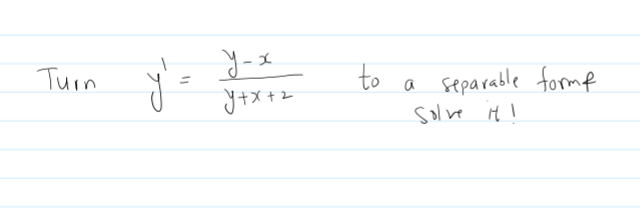 Turn y' = \frac{y-x}{y+x+2} to a separable form &
solve it!